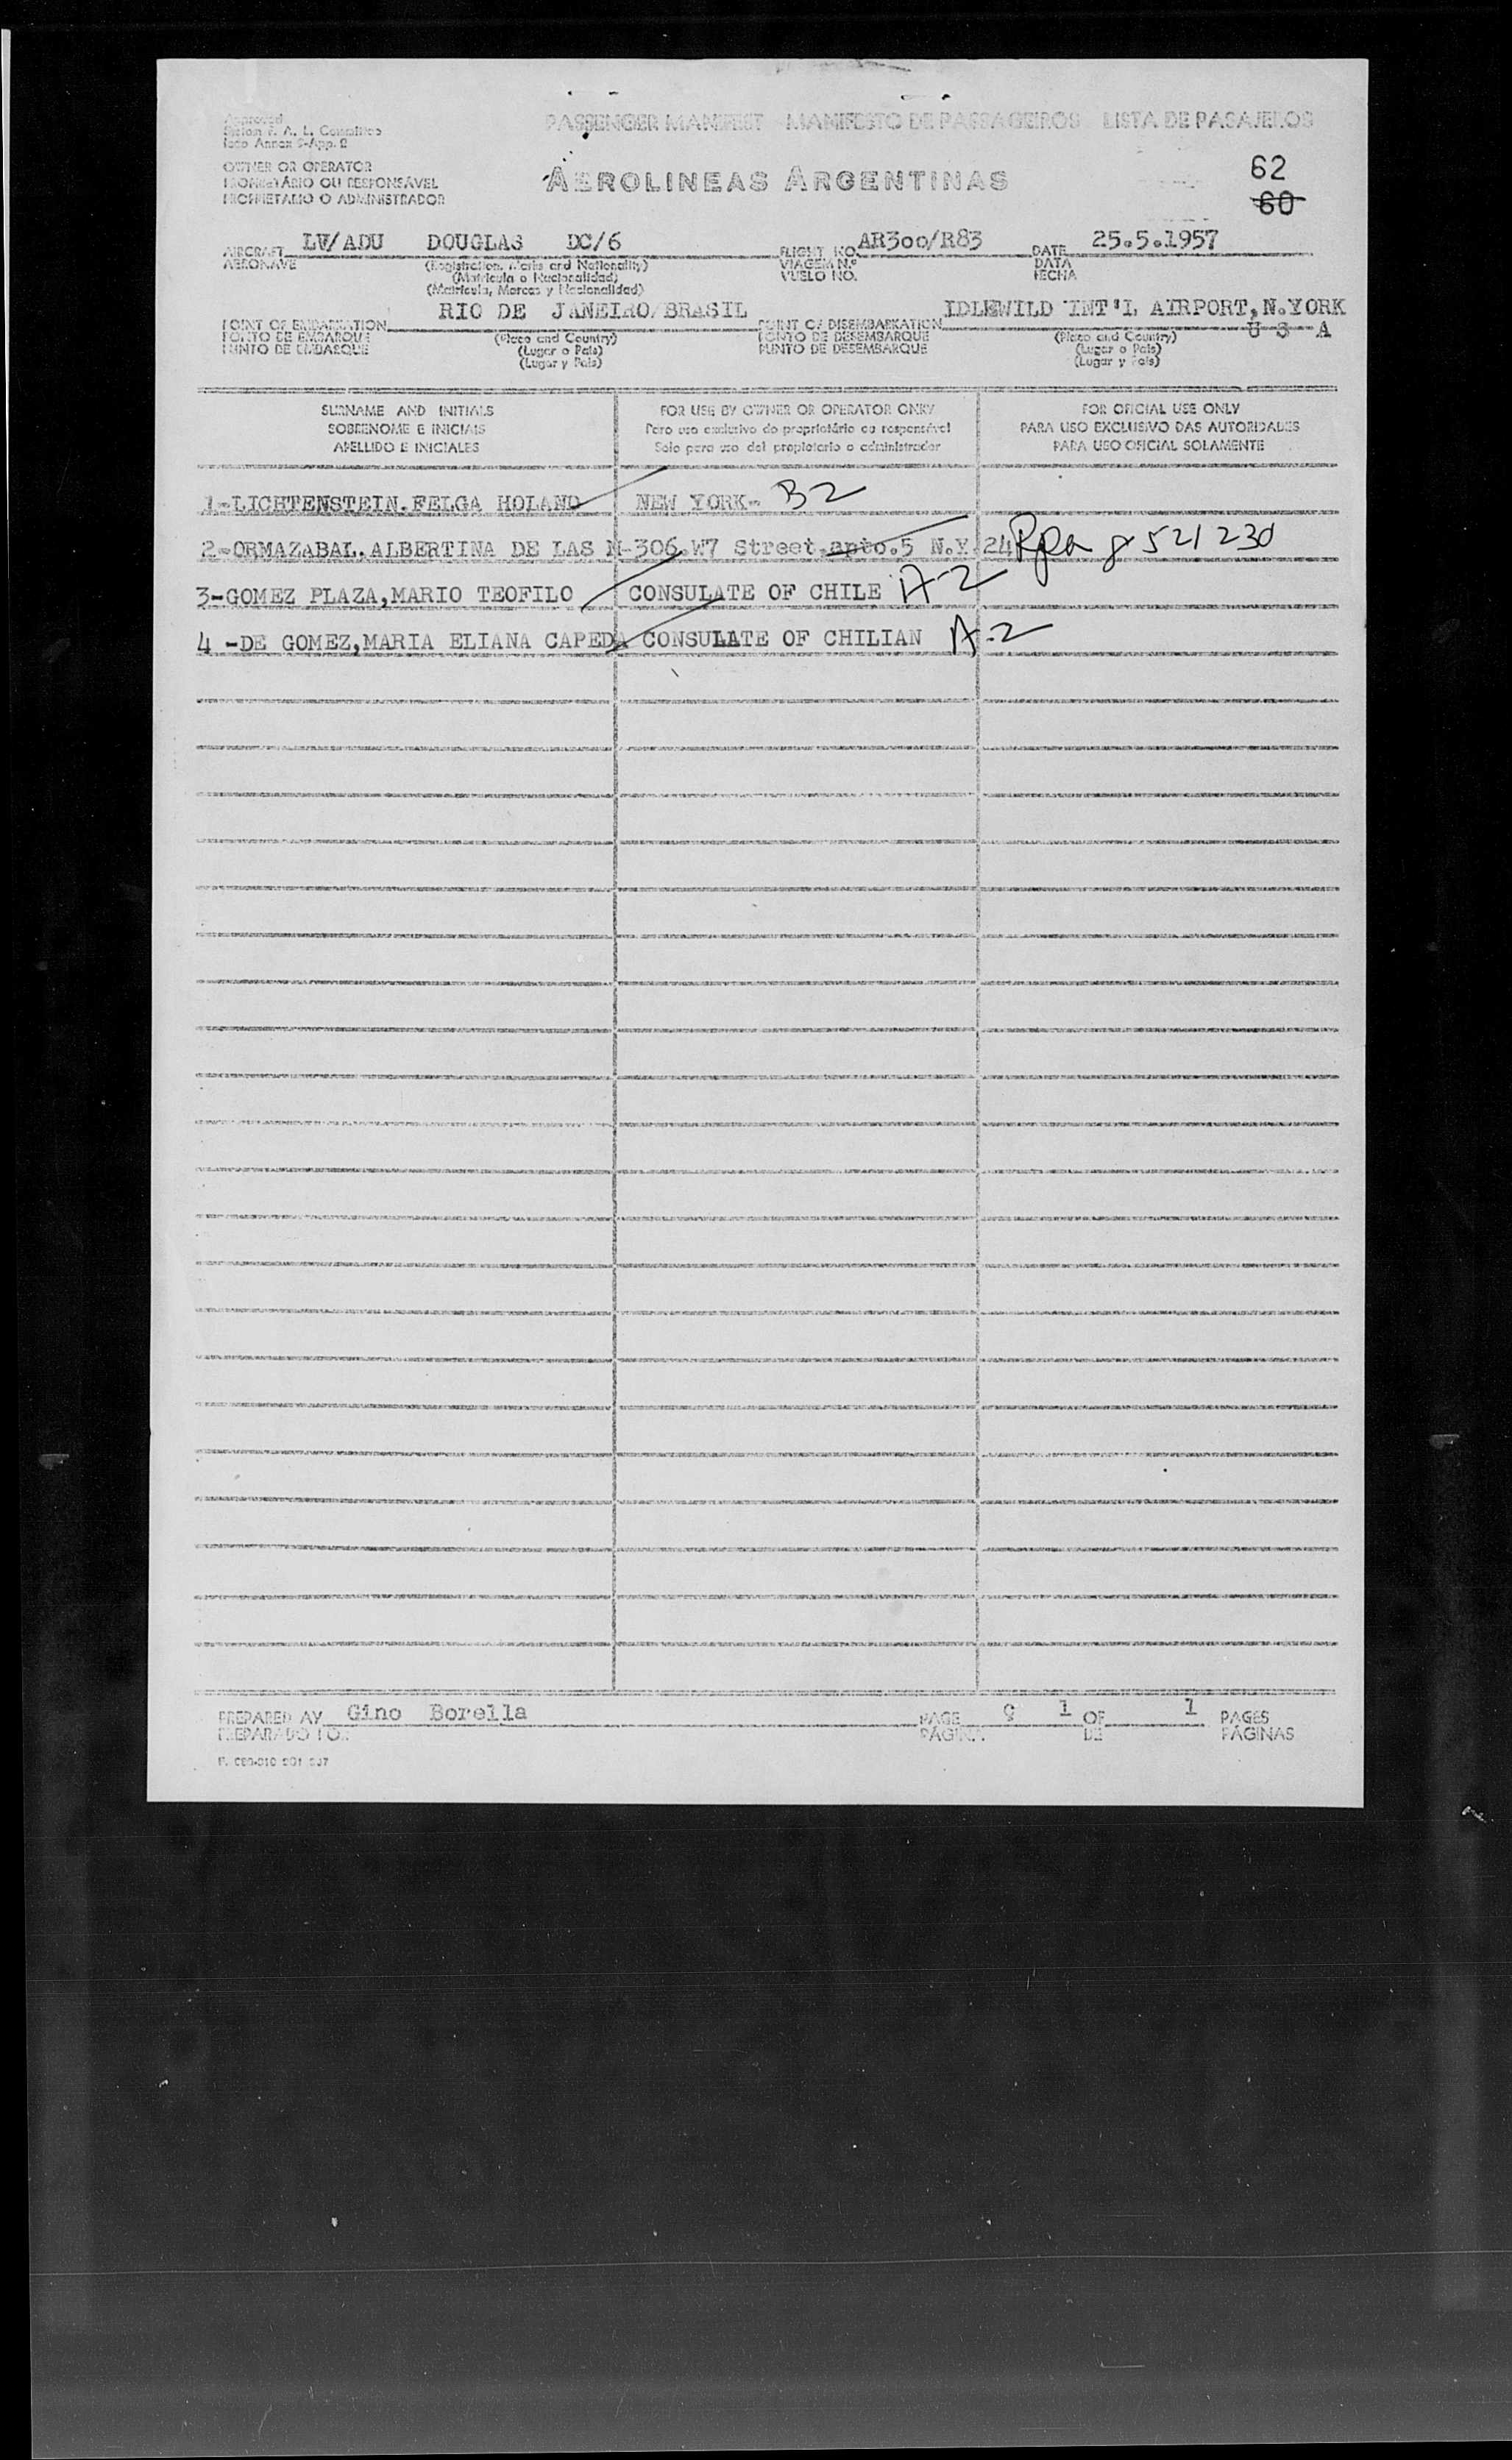 Approved
PASSENGER MANIFEST MANIFESTO DE PASSAGEIROS LISTA DE PASAJEROS
OWNER OR OPERATOR
PROPRIETÁRIO OU RESPONSÁVEL
PROPRIETARIO O ADMINISTRADOR
AEROLINEAS ARGENTINAS
62
60
AIRCRAFT LV/ADU DOUGLAS DC/6 FLIGHT NO. AR300/R83 DATE 25.5.1957
AERONAVE (Registration, Marks and Nationality) VIAGEM N.º DATA
(Matrícula o Nacionalidad) VUELO NO. FECHA
(Matrícula, Marcas y Nacionalidad)
RIO DE JANEIRO/BRASIL IDLEWILD INT'L AIRPORT, N.YORK
POINT OF EMBARKATION POINT OF DISEMBARKATION U S A
PONTO DE EMBARQUE (Place and Country) PONTO DE DESEMBARQUE (Place and Country)
PUNTO DE EMBARQUE (Lugar o País) PUNTO DE DESEMBARQUE (Lugar o País)
(Lugar y País) (Lugar y País)
SURNAME AND INITIALS FOR USE BY OWNER OR OPERATOR ONLY FOR OFICIAL USE ONLY
SOBRENOME E INICIAIS Para uso exclusivo do proprietário ou responsável PARA USO EXCLUSIVO DAS AUTORIDADES
APELLIDO E INICIALES Solo para uso del propietario o administrador PARA USO OFICIAL SOLAMENTE
1-LICHTENSTEIN.FELGA HOLAND NEW YORK- B2
2-ORMAZABAL.ALBERTINA DE LAS N-306.W7 Street,apto.5 N.Y. 24 521230
3-GOMEZ PLAZA,MARIO TEOFILO CONSULATE OF CHILE A-2
4 -DE GOMEZ,MARIA ELIANA CAPEDA CONSULATE OF CHILIAN A-2
PREPARED AY Gino Borella PAGE 1 OF 1 PAGES
PREPARADO POR PÁGINA DE PÁGINAS